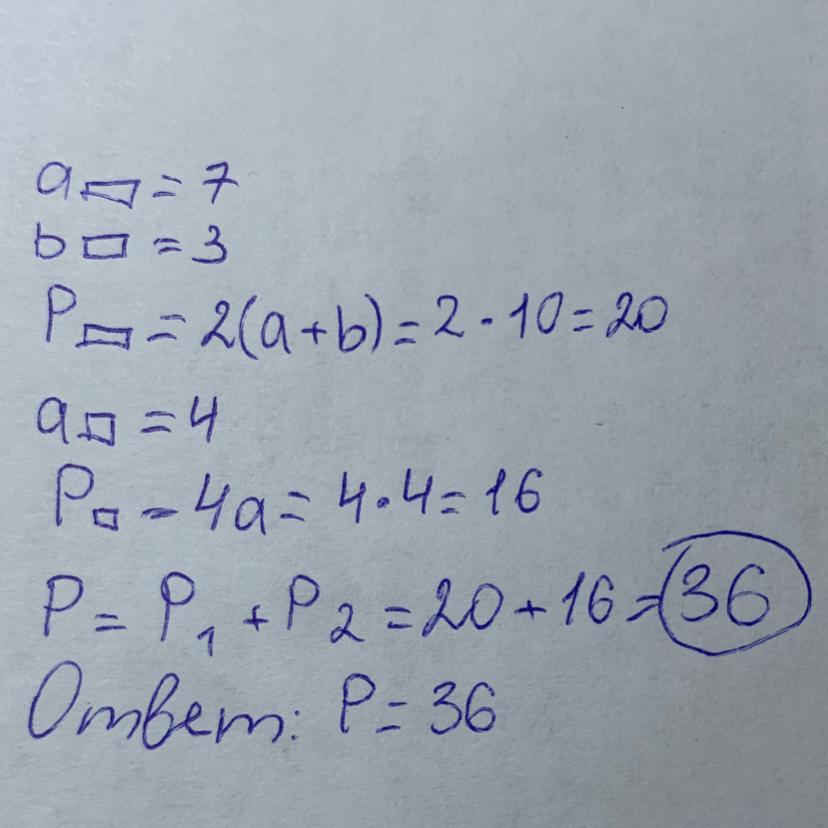 a▭ = 7
b▭ = 3
P▭ = 2(a+b) = 2 · 10 = 20
a□ = 4
P□ - 4a = 4 · 4 = 16
P = P₁ + P₂ = 20 + 16 = 36
Ответ: P = 36